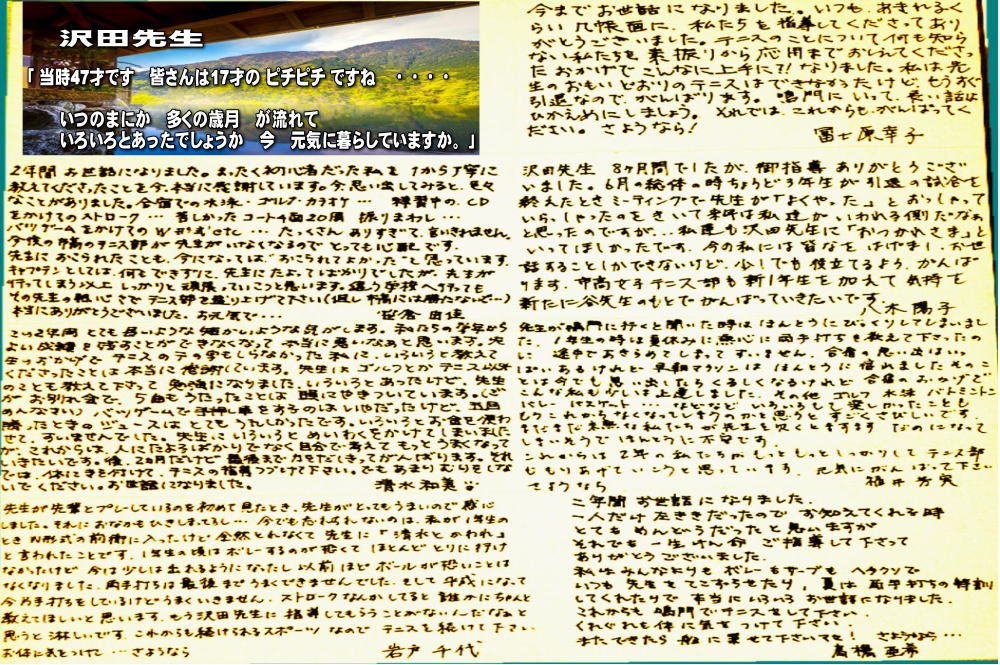 沢田先生
「 当時47才です　皆さんは17才の ピチピチ ですね　・・・・
いつのまにか　多くの歳月　が流れて
いろいろとあったでしょうか　今　元気に暮らしていますか。」
今までお世話になりました。いつも、あきれるく
らい几帳面に、私たちを指導してくださってあり
がとうございました。テニスのことについて何も知ら
ない私たちを素振りから応用までおしえてくださっ
たおかげでこんなに上手に?!なりました。私は先
生のおもいどおりのテニスはできなかったけど、もうすぐ
引退なので、がんばります。鳴門において長い話は
ひかえめにしましょう。それでは、これからも、がんばってく
ださい。さようなら!
冨士原幸子
2年間お世話になりました。まったく初心者だった私を1から丁寧に
教えてくださったことを今、本当に感謝しています。今思い出してみると、色々
なことがありました。合宿での水泳・ゴルフ・カラオケ… 練習中の、CD
をかけてのストローク… 苦しかったコート4面20周 振りまわし…
バツゲームをかけてのW形式etc… たっくさんありすぎて、言いきれません。
今後の市高のテニス部が先生がいなくなるのでとっても心配です。
先生におこられたことも、今になっては"おこられてよかった"と思っています。
キャプテンとしては、何もできずに、先生にたよってばかりでしたが、先生が
行ってしまう以上しっかりと頑張っていこうと思います。違う学校へ行っても
その先生の粗心でテニス部を盛り上げて下さい(但し市高には勝たないで…)
本当にありがとうございました。お元気で…
笹倉由佳
沢田先生 8ヶ月間でしたが、御指導ありがとうござ
いました。6月の総体の時ちょうど3年生が引退の試合を
終えたときミーティングで先生が「よくやった」とおっしゃって
いらっしゃったのをきいて来年は私達がいわれる側だなあ
と思ったのですが…私達も沢田先生に「おつかれさま」と
いってほしかったです。今の私には皆なをはげまし、お世
話することしかできないけど、少しでも役立てるよう、がんば
ります。市高女子テニス部も新1年生を加えて気持を
新たに谷先生のもとでがんばっていきたいです。
八木陽子
この2年間とても長いような短かいような気がします。私たちの学年から
よい成績を残すことができなくなって本当に悪いなあと思います。先
生のおかげでテニスのテの字もしらなかった私に、いろいろと教えて
くださったことは本当に感謝しています。先生はゴルフとかテニス以外
のことも教えて下さって勉強になりました。いろいろとあったけど、先生
がお別れ会で、5曲もうたったことは頭にやきついています。(ご
めんなさい) バツゲームで手押し車をするのはいやだったけど、
勝ったときのジュースはとてもうれしかったです。いろいろとお金を使わ
せて、すいませんでした。先生にいろいろとめいわくをかけてしまいました
が、これからは、人にたよるばかりでなく自分で考えてもっとうまくなって
いきたいです。後、2ヵ月だけど最後まで力をだしきってがんばります。それ
では、体に気を付けて、テニスの指導つづけて下さい。でもあまりむりをしな
いでください。お世話になりました。
清水和美
先生が鳴門に行くと聞いた時はほんとうにびっくりしてしまいまし
た。1年生の時は夏休みに熱心に両手打ちを教えて下さったの
に 途中であきらめてしまってすいません。合宿の思い出はいっ
ぱいあるけれど早朝マラソンはほんとうに疲れました そのこ
とは今でも思い出したらくるしくなるけれど合宿のおかげで
こんな私も少しは上達しました。その他 ゴルフ 水泳 バドミントン
カラオケ… などなどいろいろして楽しかったことも
もうこれからなくなってしまうのかと思うとすごくさびしいです。
まだまだ未熟な私たちが先生を欠くとますますだめになって
しまいそうでほんとうに不安です。
これからは2年の私たちがもっともっとしっかりしてテニス部
をもりあげていこうと思っています。元気にがんばって下さい
さようなら
先生が先輩とプレーしているのを初めて見たとき、先生がとってもうまいので感心
しました。それにおなかもひきしまってるし… 今でも忘れられないのは、私が1年生の
ときW形式の前衛に入ったけど全然とれなくて先生に「清水とかわれ」
と言われたことです。1年生の頃はボレーするのが恐くてほとんどとりに行け
なかったけど今は少しは出れるようになったし以前ほどボールが恐いことは
なくなりました。両手打ちは最後までうまくできませんでした。そして平成になって
今片手打ちをしているけどうまくいきません。ストロークなんかしてると誰かにちゃんと
教えてほしいと思います。もう沢田先生に指導してもらうことがないんだなぁと
思うと淋しいです。これからも続けられるスポーツなのでテニスを続けて下さい。
お体に気をつけて…さようなら
岩戸千代
二年間お世話になりました。
一人だけ左ききだったのでお教えてくれる時
とてもめんどうだったと思いますが
それでも一生けん命ご指導して下さって
ありがとうございました。
私はみんなよりもボレーもサーブもヘタクソで
いつも先生をてこずらせたり、夏は両手打ちの特訓
してくれたりで本当にいろいろお世話になりました。
これからも鳴門でテニスをして下さい。
くれぐれも体に気をつけて下さい。
またできたら船に乗せて下さいネ! さようなら…
高橋亜希